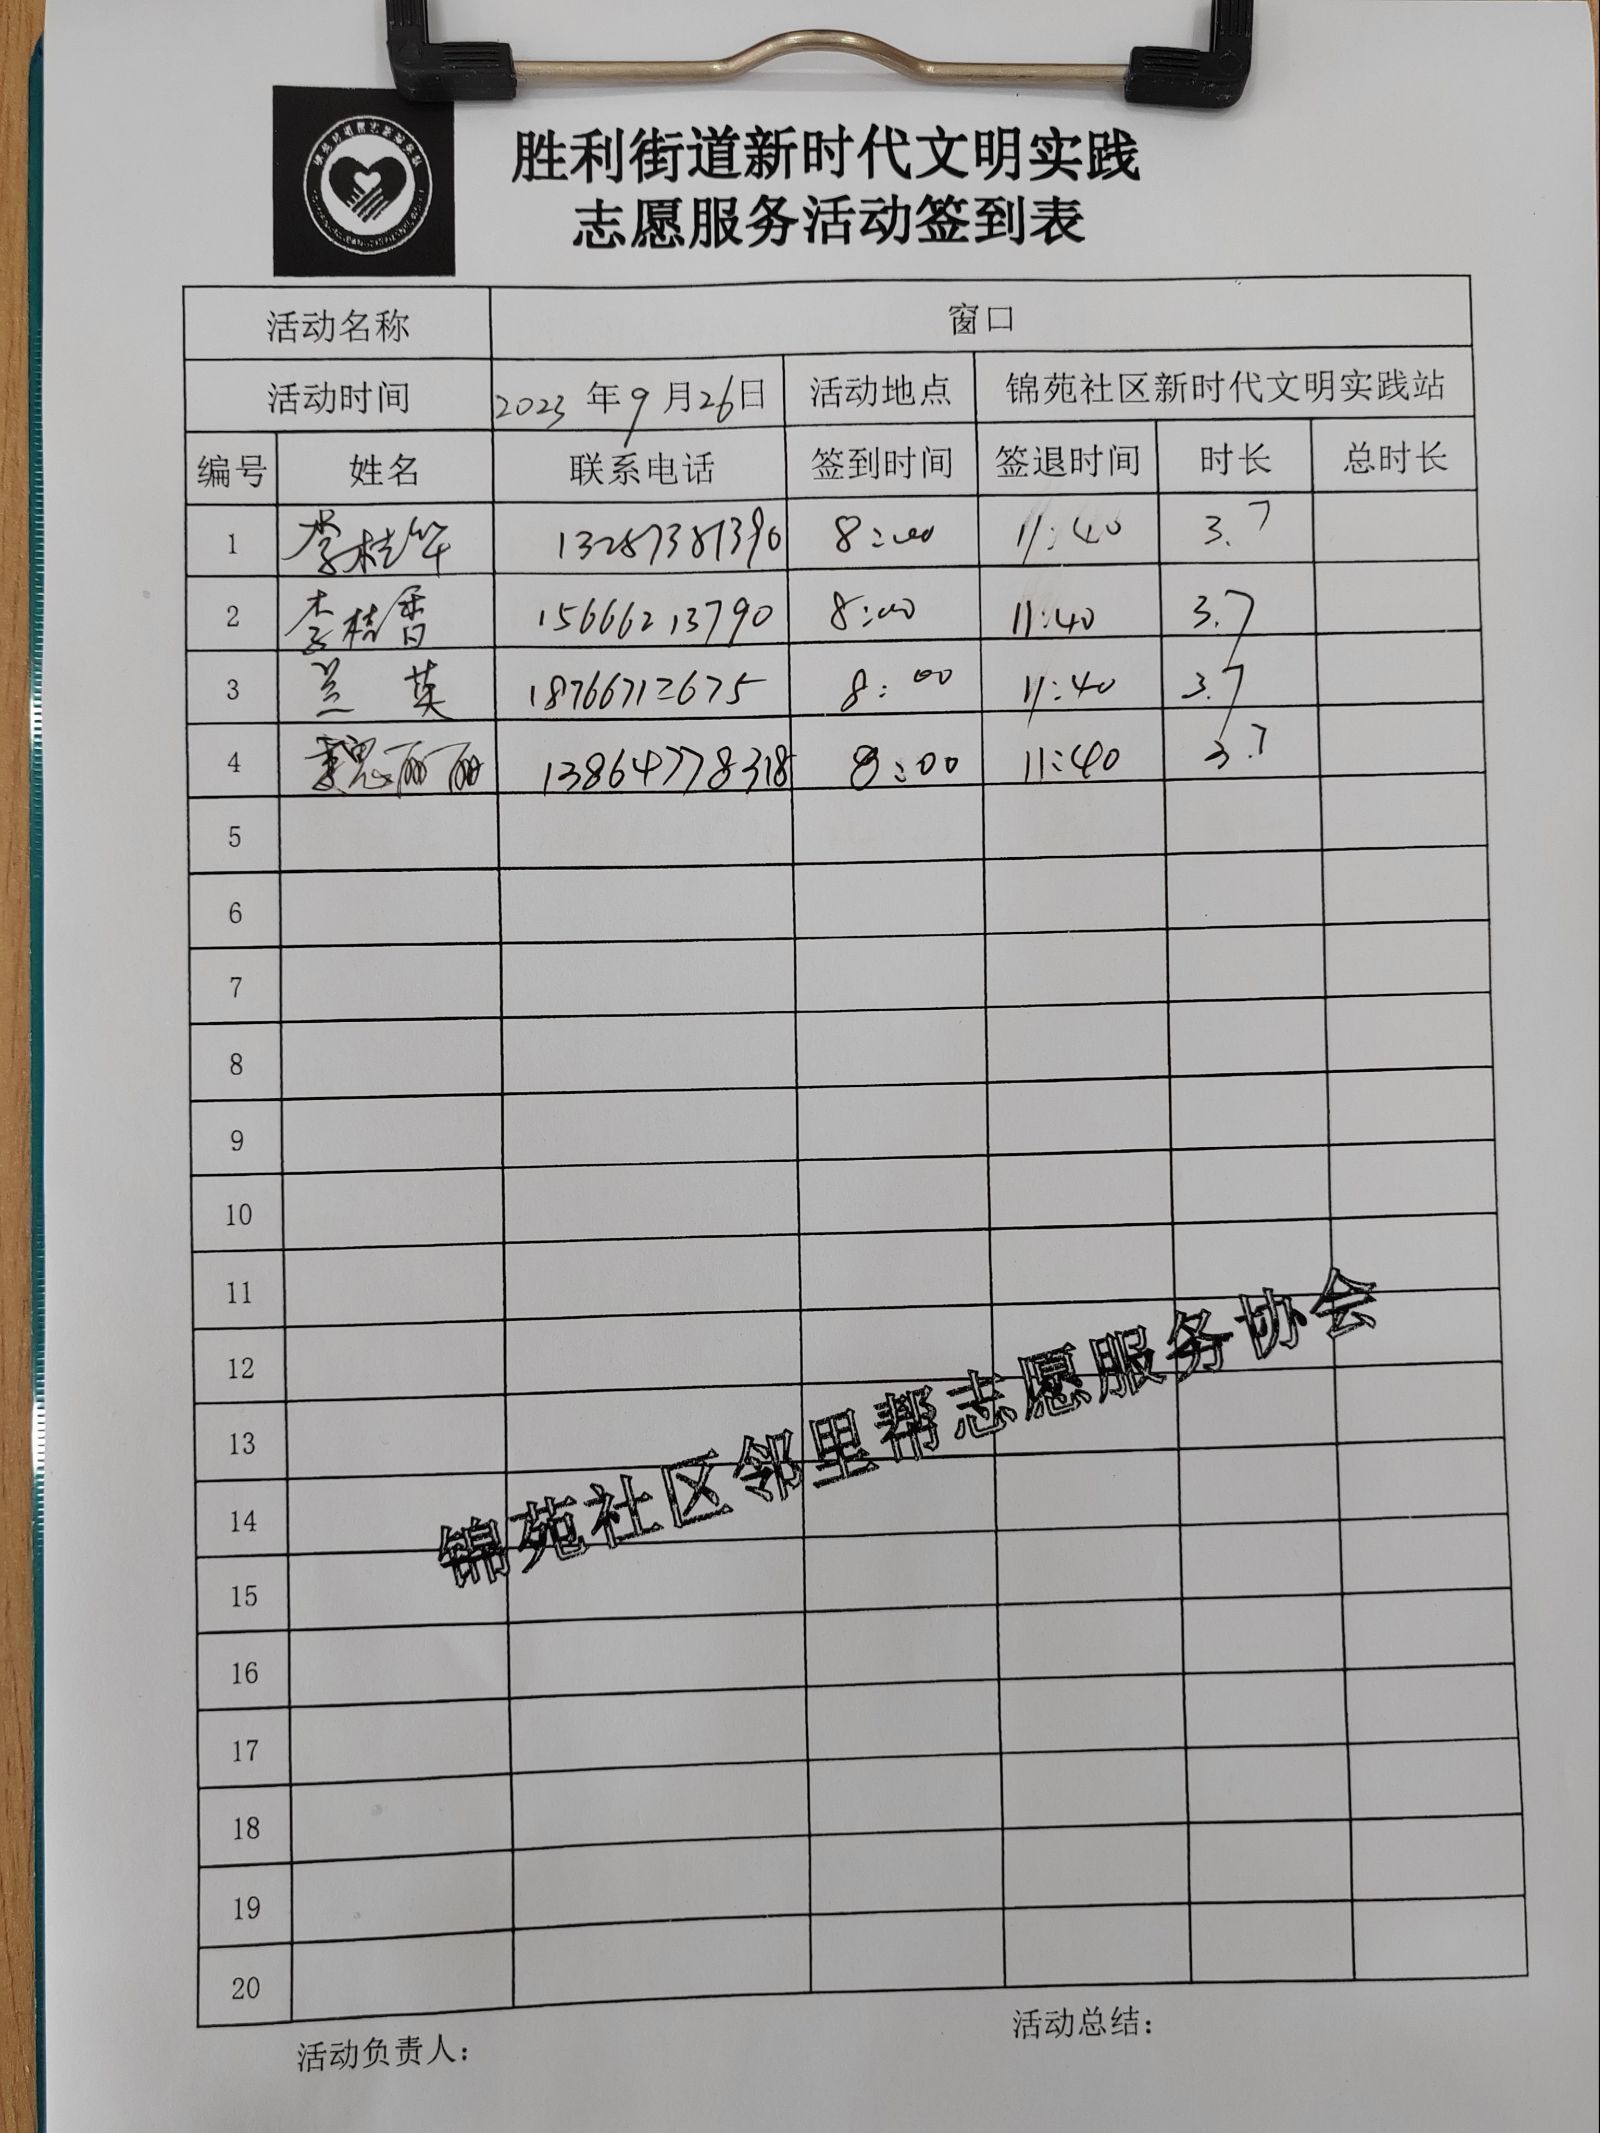 胜利街道新时代文明实践
志愿服务活动签到表
活动名称 窗口
活动时间 2023年9月26日 活动地点 锦苑社区新时代文明实践站
编号 姓名 联系电话 签到时间 签退时间 时长 总时长
1 李桂华 13287381390 8:00 11:40 3.7
2 李桂香 15666213790 8:00 11:40 3.7
3 兰英 18766712675 8:00 11:40 3.7
4 魏丽丽 13864778318 8:00 11:40 3.7
5
6
7
8
9
10
11
12
13
14
15
16
17
18
19
20
锦苑社区邻里帮志愿服务协会
活动负责人： 活动总结：